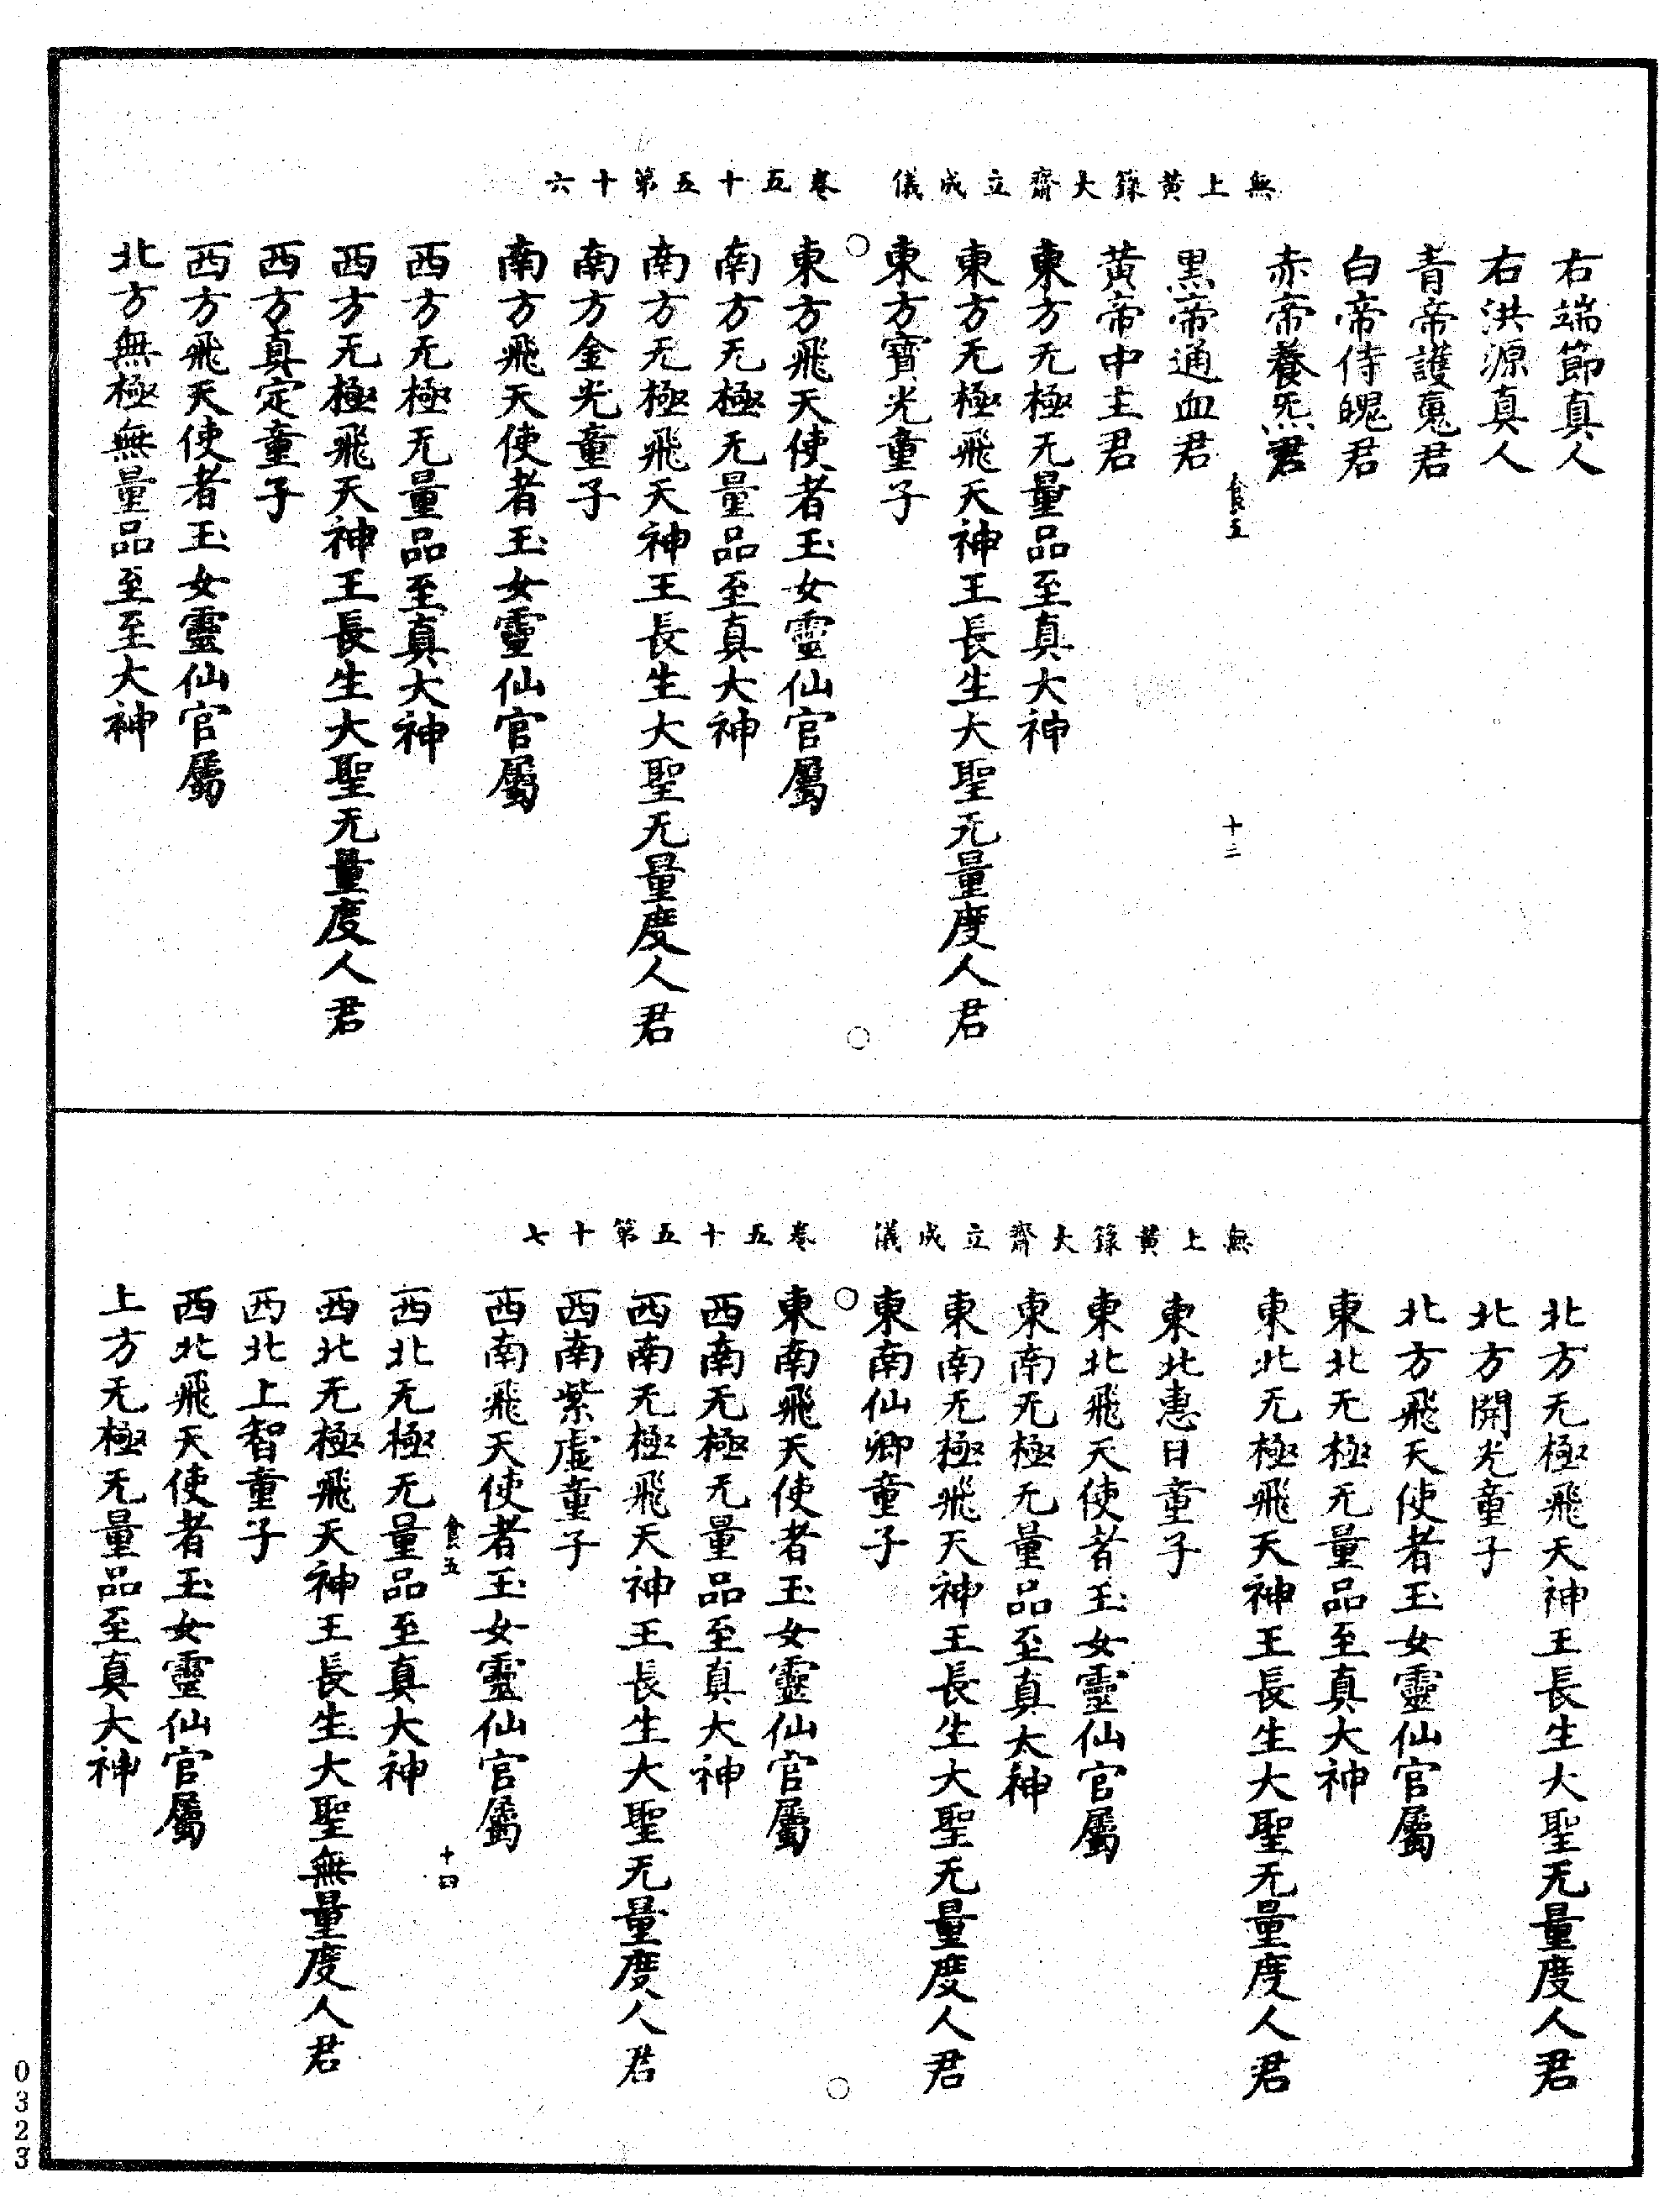 無上黃籙大齋立成儀　卷五十五第十六
右端節真人
右洪源真人
青帝護䰟君
白帝侍魄君
赤帝養炁君
食五　十三
黑帝通血君
黃帝中主君
東方无極无量品至真大神
東方无極飛天神王長生大聖无量度人君
東方寶光童子
東方飛天使者玉女靈仙官屬
南方无極无量品至真大神
南方无極飛天神王長生大聖无量度人君
南方金光童子
南方飛天使者玉女靈仙官屬
西方无極无量品至真大神
西方无極飛天神王長生大聖无量度人君
西方真定童子
西方飛天使者玉女靈仙官屬
北方無極無量品至至大神
無上黃籙大齋立成儀　卷五十五第十七
北方无極飛天神王長生大聖无量度人君
北方開光童子
北方飛天使者玉女靈仙官屬
東北无極无量品至真大神
東北无極飛天神王長生大聖无量度人君
東北惠日童子
東北飛天使者玉女靈仙官屬
東南无極无量品至真大神
東南无極飛天神王長生大聖无量度人君
東南仙卿童子
東南飛天使者玉女靈仙官屬
西南无極无量品至真大神
西南无極飛天神王長生大聖无量度人君
西南紫虛童子
西南飛天使者玉女靈仙官屬
食五　十四
西北无極无量品至真大神
西北无極飛天神王長生大聖無量度人君
西北上智童子
西北飛天使者玉女靈仙官屬
上方无極无量品至真大神
0323